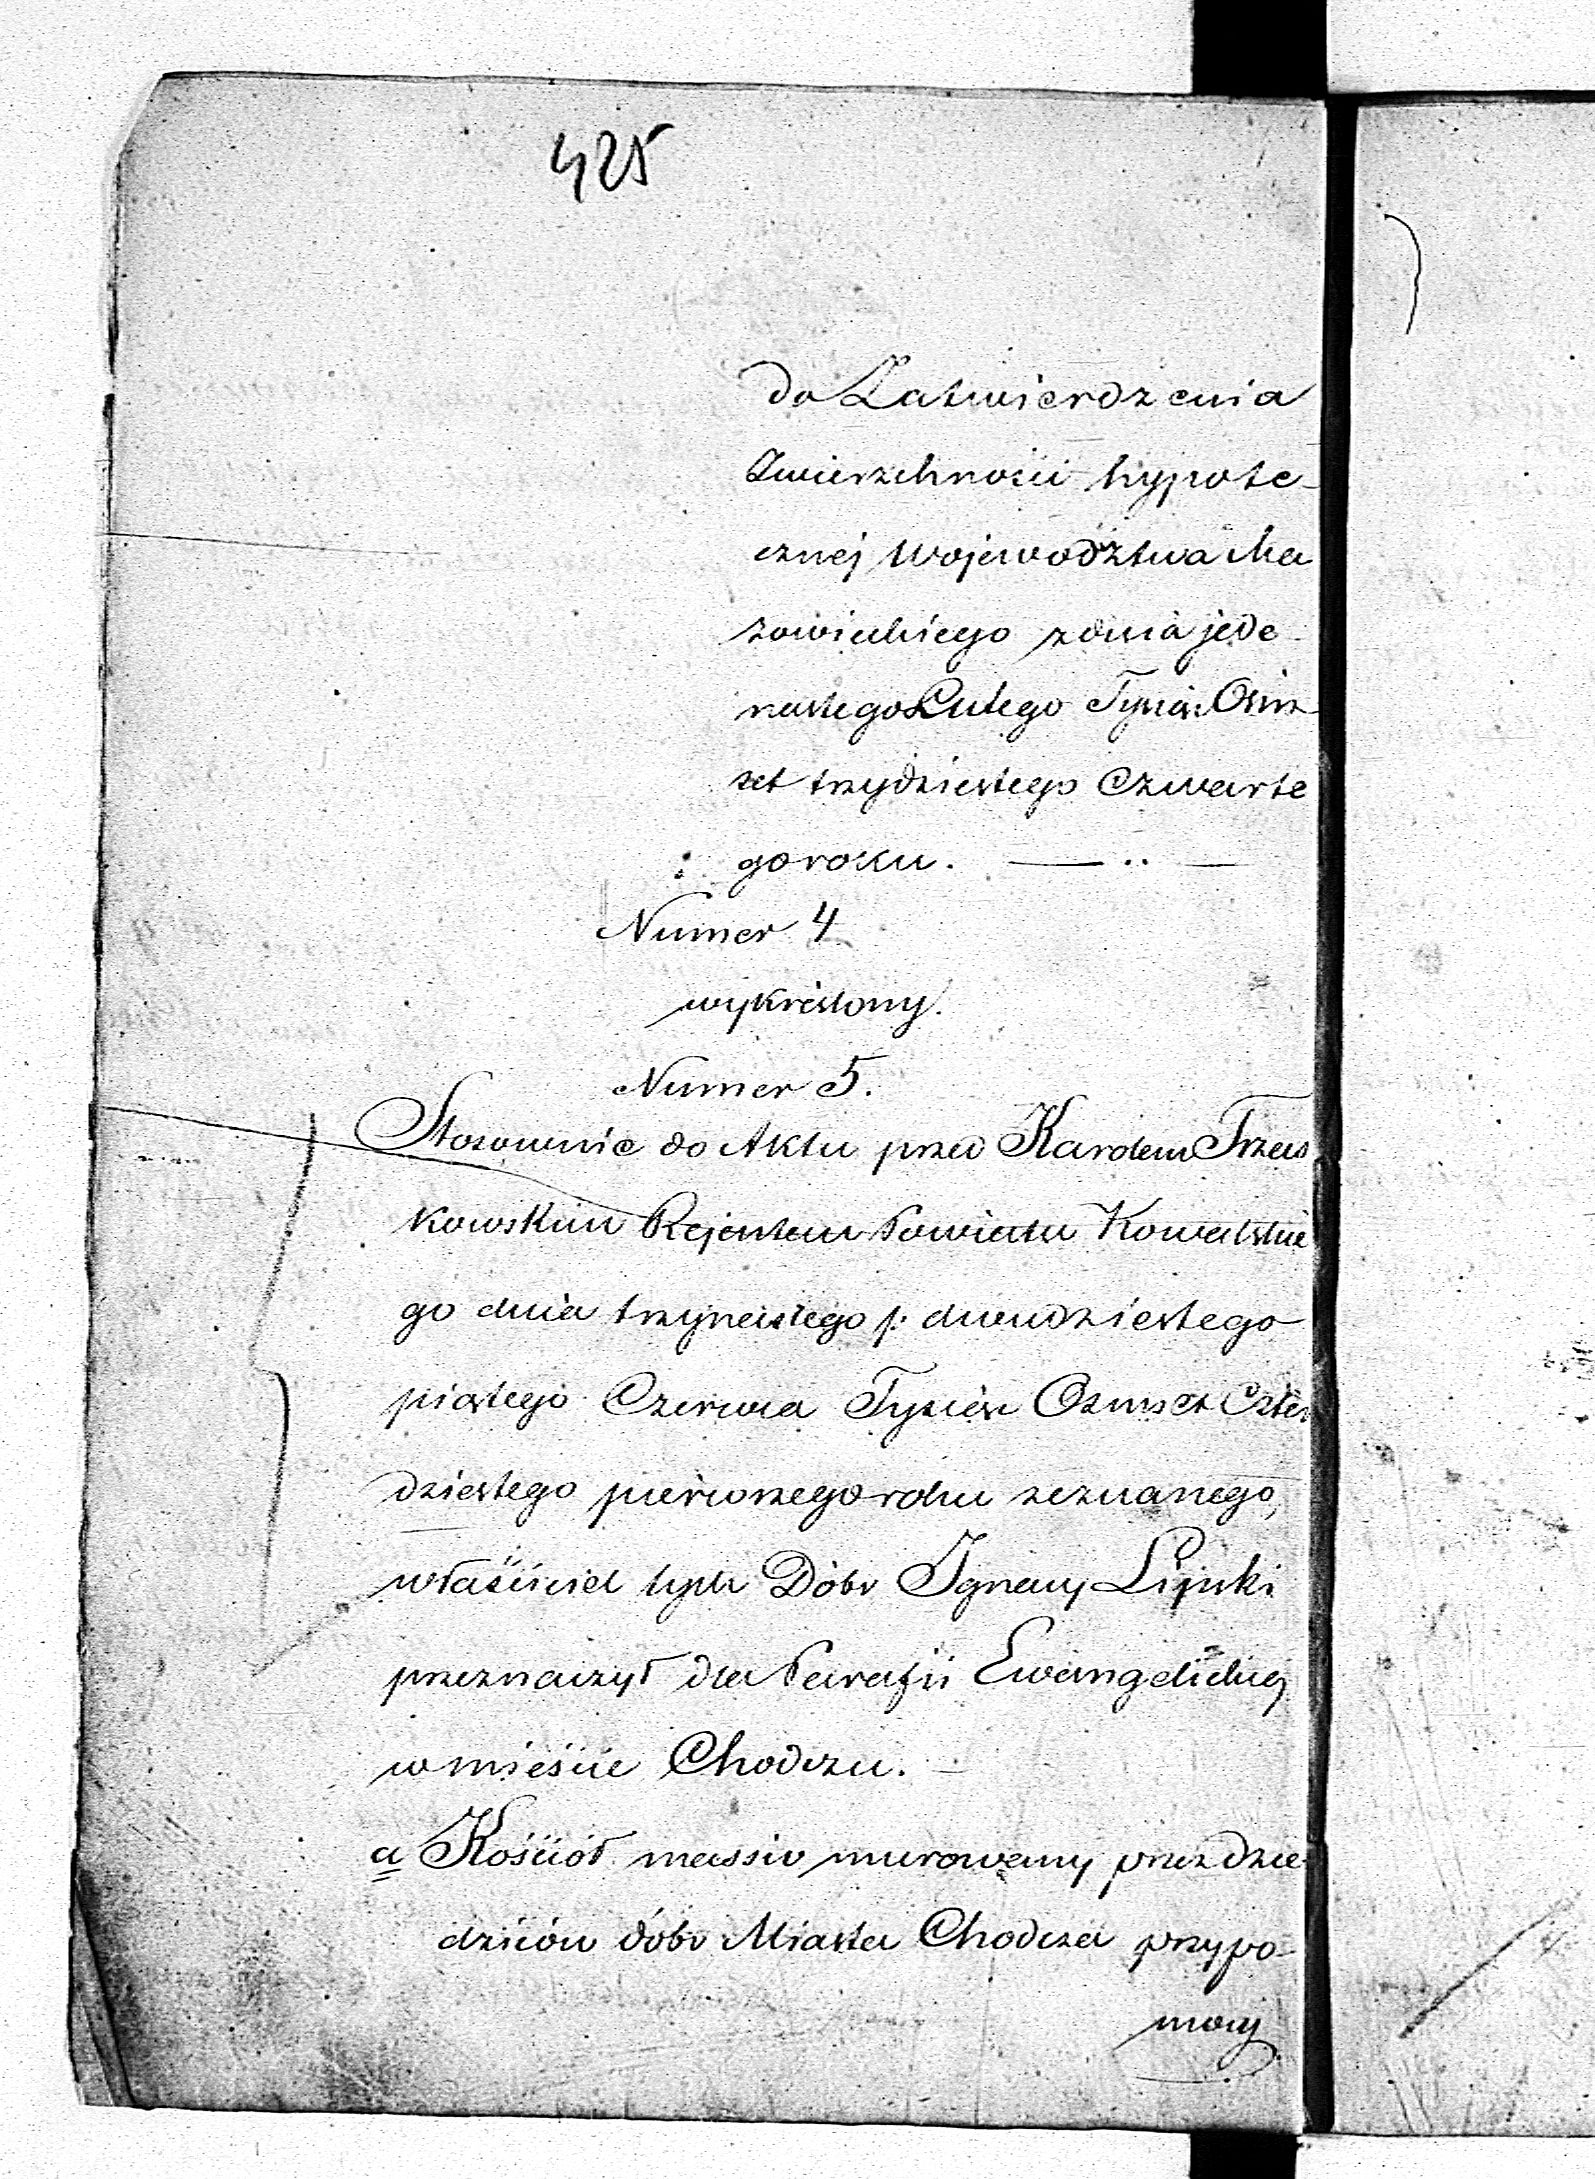 425
do Zatwierdzenia
Zwierzchności hypote-
cznej Województwa Ma
zowieckiego z dnia jede
nastego Lutego Tysiąc Ośm
set trzydziestego Czwarte
go roku. — .. —
Numer 4
wykreślony.
Numer 5.
Stosownie do Aktu przed Karolem Trzcis
kowskim Rejentem Powiatu Kowalskie
go dnia trzynastego / dwudziestego
piątego Czerwca Tysiąc Osmset Czter
dziestego pierwszego roku zeznanego,
właściciel tych Dóbr Ignacy Lipski
przeznaczył dla Parafii Ewangelickiej
w mieście Chodczu. —
a Kościół massiv murowany przez dzie
dziców dóbr Miasta Chodcza przy po-
mocy